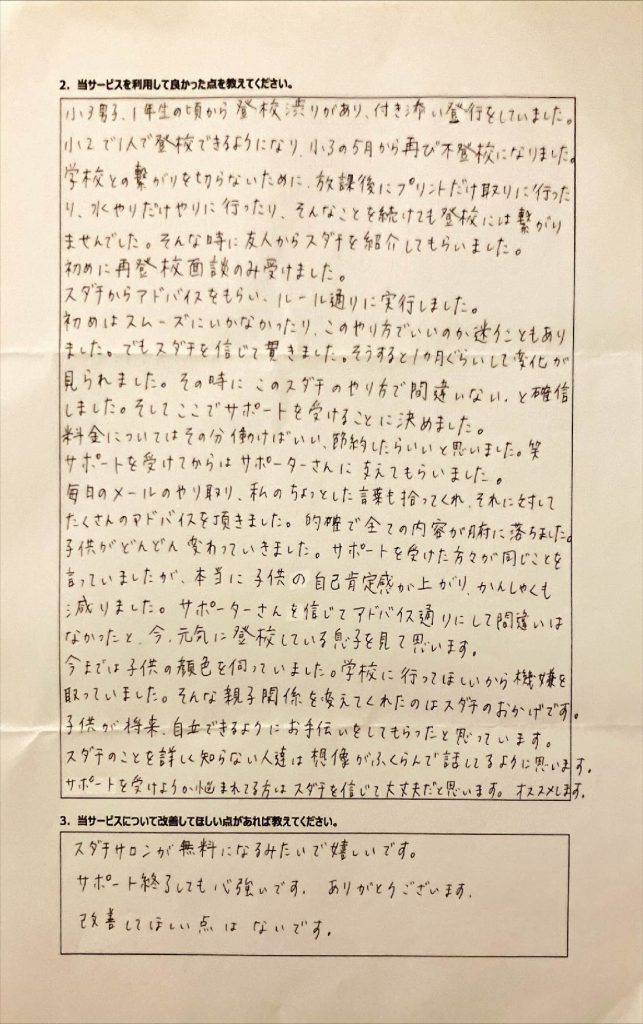 2. 当サービスを利用して良かった点を教えてください。
小3男子、1年生の頃から登校渋りがあり、付き添い登行をしていました。
小2で1人で登校できるようになり、小3の5月から再び不登校になりました。
学校との繋がりを切らないために、放課後にプリントだけ取りに行った
り、水やりだけやりに行ったり、そんなことを続けても登校には繋がり
ませんでした。そんな時に友人からスダチを紹介してもらいました。
初めに再登校面談のみ受けました。
スダチからアドバイスをもらい、ルール通りに実行しました。
初めはスムーズにいかなかったり、このやり方でいいのか迷うこともあり
ました。でもスダチを信じて貫きました。そうすると1カ月ぐらいして変化が
見られました。その時にこのスダチのやり方で間違いない、と確信
しました。そしてここでサポートを受けることに決めました。
料金についてはその分働けばいい、節約したらいいと思いました。笑
サポートを受けてからはサポーターさんに支えてもらいました。
毎日のメールのやり取り、私のちょっとした言葉も拾ってくれ、それに対して
たくさんのアドバイスを頂きました。的確で全ての内容が腑に落ちました。
子供がどんどん変わっていきました。サポートを受けた方々が同じことを
言っていましたが、本当に子供の自己肯定感が上がり、かんしゃくも
減りました。サポーターさんを信じてアドバイス通りにして間違いは
なかったと、今、元気に登校している息子を見て思います。
今までは子供の顔色を伺っていました。学校に行ってほしいから機嫌を
取っていました。そんな親子関係を変えてくれたのはスダチのおかげです。
子供が将来、自立できるようにお手伝いをしてもらったと思っています。
スダチのことを詳しく知らない人達は想像がふくらんで話してるように思います。
サポートを受けようか悩まれてる方はスダチを信じて大丈夫だと思います。オススメします。
3. 当サービスについて改善してほしい点があれば教えてください。
スダチサロンが無料になるみたいで嬉しいです。
サポート終了しても心強いです。ありがとうございます。
改善してほしい点はないです。